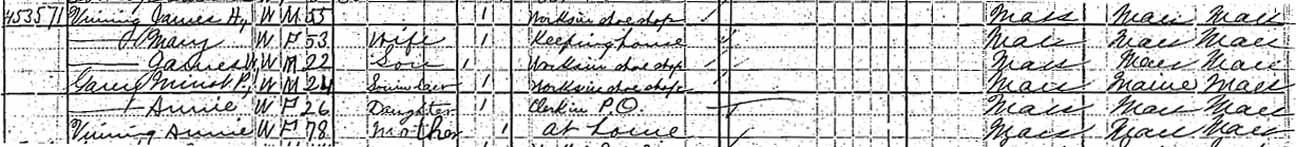 453 571 Vining James Hy, W M 55 1 Works in shoe shop / Mass Mass Mass
—— Mary W F 53 Wife 1 Keeping house Mass Mass Mass
—— James W, W M 22 Son 1 Works in shoe shop / Mass Mass Mass
Minot P, W M 24 Son in law 1 Works in shoe shop Mass Maine Mass
—— Annie, W F 26 Daughter 1 Clerk in P.O. Mass Mass Mass
Vining Annie W F 78 Mother 1 at home / Mass Mass Mass